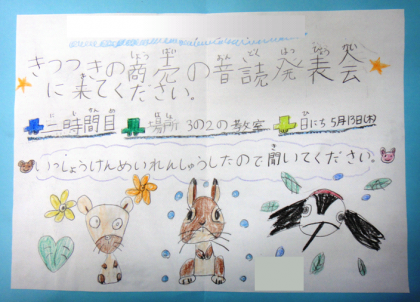 きつつきの商売の音読発表会
に来てください。
二時間目 場所 3の2の教室 日にち 5月13日(木)
いっしょうけんめいれんしゅうしたので聞いてください。